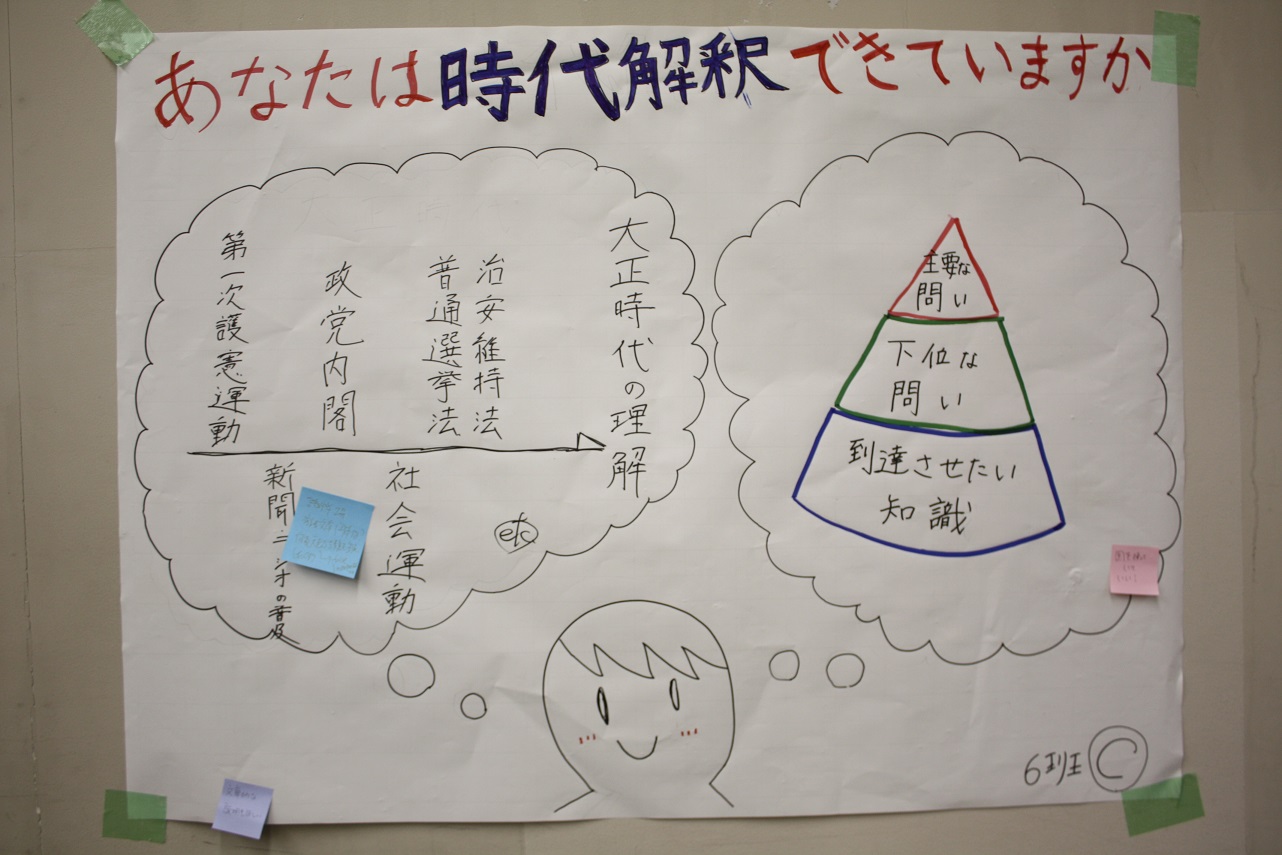 あなたは時代解釈できていますか
大正時代の理解
治安維持法
普通選挙法
政党内閣
第一次護憲運動
社会運動
新聞 の普及
etc
主要な
問い
下位な
問い
到達させたい
知識
6班 C